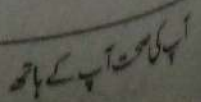 آپ کی صحت آپ کے ہاتھ